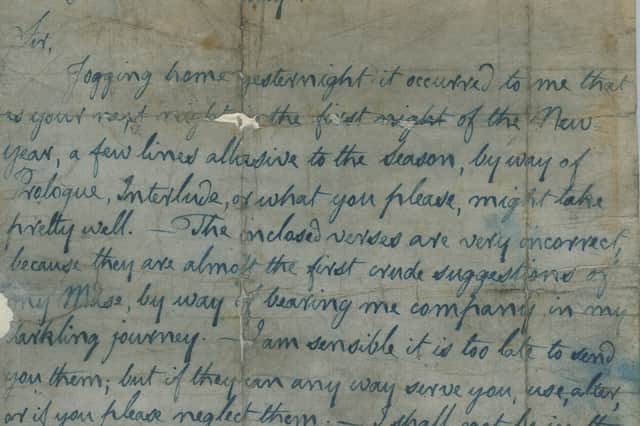 Sir,
Jogging home yesternight it occurred to me that
as your next night is the first night of the New
Year, a few lines allusive to the Season, by way of
Prologue, Interlude, or what you please, might take
pretty well. — The inclosed verses are very incorrect,
because they are almost the first crude suggestions of
my Muse, by way of bearing me company in my
darkling journey. — I am sensible it is too late to send
you them; but if they can any way serve you, use, alter,
or if you please neglect them. — I shall not be in the